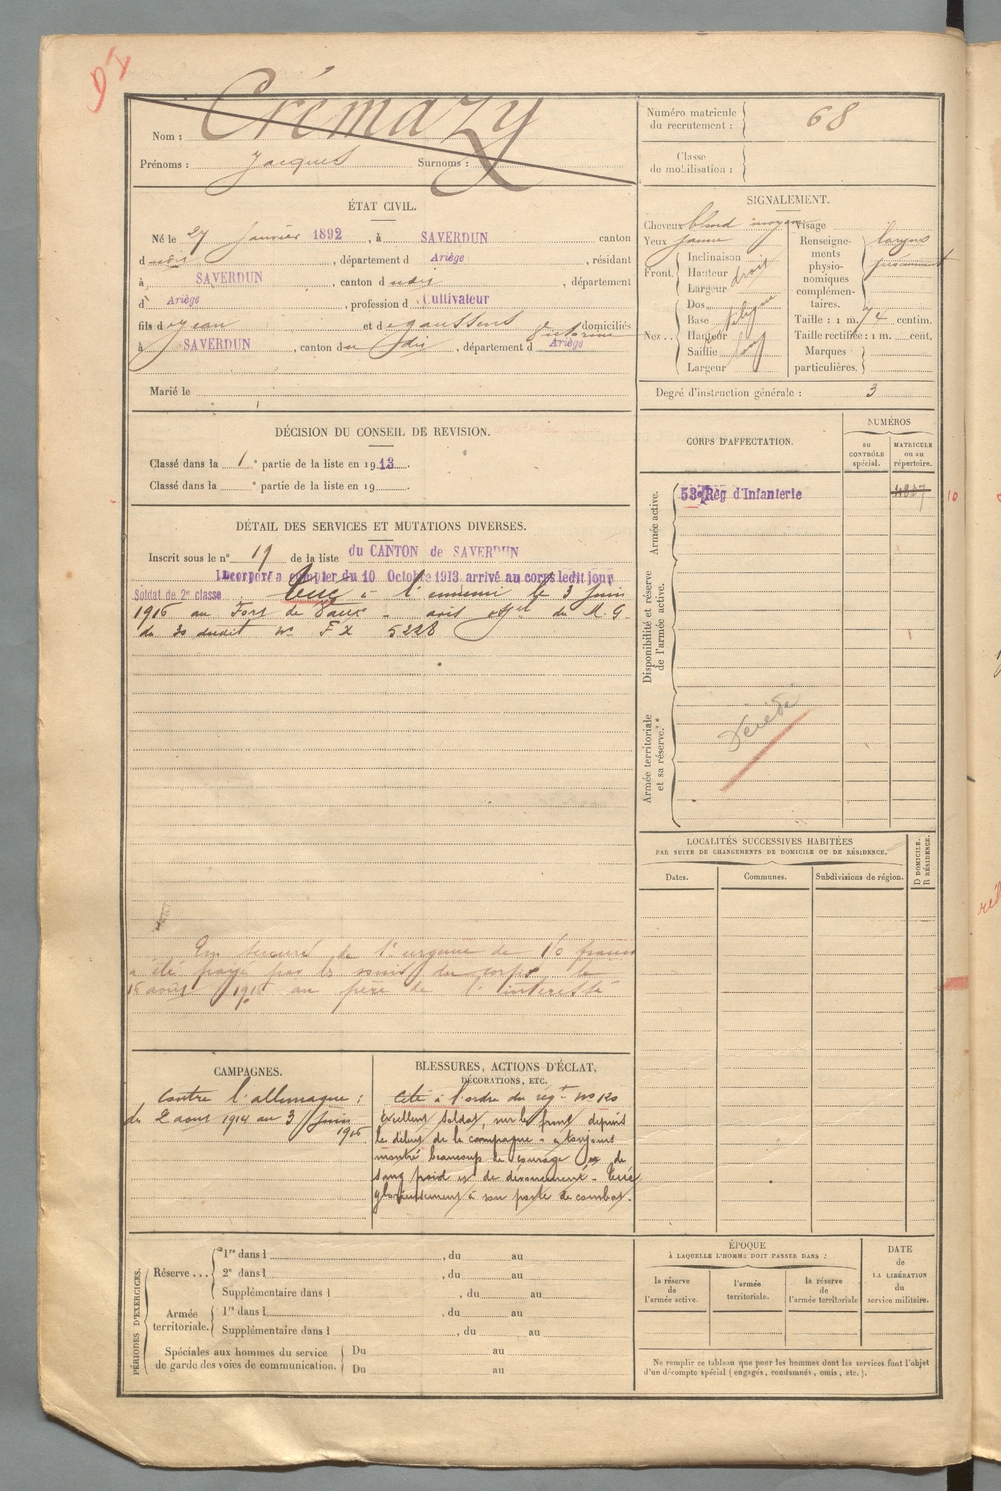 Nom : Crémazy
Prénoms : Jacques Surnoms :
Numéro matricule du recrutement : 68
Classe de mobilisation :
ÉTAT CIVIL.
Né le 27 janvier 1892, à SAVERDUN canton
dudit, département d Ariège, résidant
à SAVERDUN, canton dudit, département
d' Ariège, profession d Cultivateur
fils de Jean et de Victorine domiciliés
à SAVERDUN, canton du dit, département d Ariège
Marié le
SIGNALEMENT.
Cheveux blond moyen
Yeux jaune
Front. Inclinaison
Hauteur droit
Largeur
Nez.. Dos
Base
Hauteur
Saillie long
Largeur
Visage
Renseignements physionomiques complémentaires.
Taille : 1 m. 74 centim.
Taille rectifiée : 1 m. cent.
Marques particulières.
Degré d'instruction générale : 3
DÉCISION DU CONSEIL DE REVISION.
Classé dans la 1e partie de la liste en 1913.
Classé dans la e partie de la liste en 19 .
CORPS D'AFFECTATION.
NUMÉROS
au CONTRÔLE spécial.
MATRICULE ou au répertoire.
Armée active.
53e Rég d'Infanterie
Disponibilité et réserve de l'armée active.
Armée territoriale et sa réserve.
Décédé
DÉTAIL DES SERVICES ET MUTATIONS DIVERSES.
Inscrit sous le n° 19 de la liste du CANTON de SAVERDUN
Incorporé a compter du 10 Octobre 1913 arrivé au corps ledit jour
Soldat de 2e classe. Tué à l'ennemi le 3 juin
1916 au Fort de Vaux - avis off du M. G.
du 30 dudit N° FX 5228
Un secours de 1e urgence de 150 francs
a été payé par les soins du corps le
16 août 1916 au père de l'intéressé
LOCALITÉS SUCCESSIVES HABITÉES
PAR SUITE DE CHANGEMENTS DE DOMICILE OU DE RÉSIDENCE.
Dates.
Communes.
Subdivisions de région.
D DOMICILE.
R RÉSIDENCE.
CAMPAGNES.
Contre l'allemagne :
du 2 aout 1914 au 3 juin
1916
BLESSURES, ACTIONS D'ÉCLAT,
DÉCORATIONS, ETC.
Cité à l'ordre du régt N° 120
Excellent soldat, sur le front depuis
le début de la campagne - a toujours
montré beaucoup de courage et de
sang froid et de dévouement - Tué
glorieusement à son poste de combat.
PÉRIODES D'EXERCICES.
Réserve ... 1re dans l , du au
2e dans l , du au
Supplémentaire dans l , du au
Armée territoriale. 1re dans l , du au
Supplémentaire dans l , du au
Spéciales aux hommes du service de garde des voies de communication. Du au
Du au
ÉPOQUE
À LAQUELLE L'HOMME DOIT PASSER DANS :
la réserve de l'armée active.
l'armée territoriale.
la réserve de l'armée territoriale
DATE de LA LIBÉRATION du service militaire.
Ne remplir ce tableau que pour les hommes dont les services font l'objet
d'un décompte spécial (engagés, condamnés, omis, etc.).